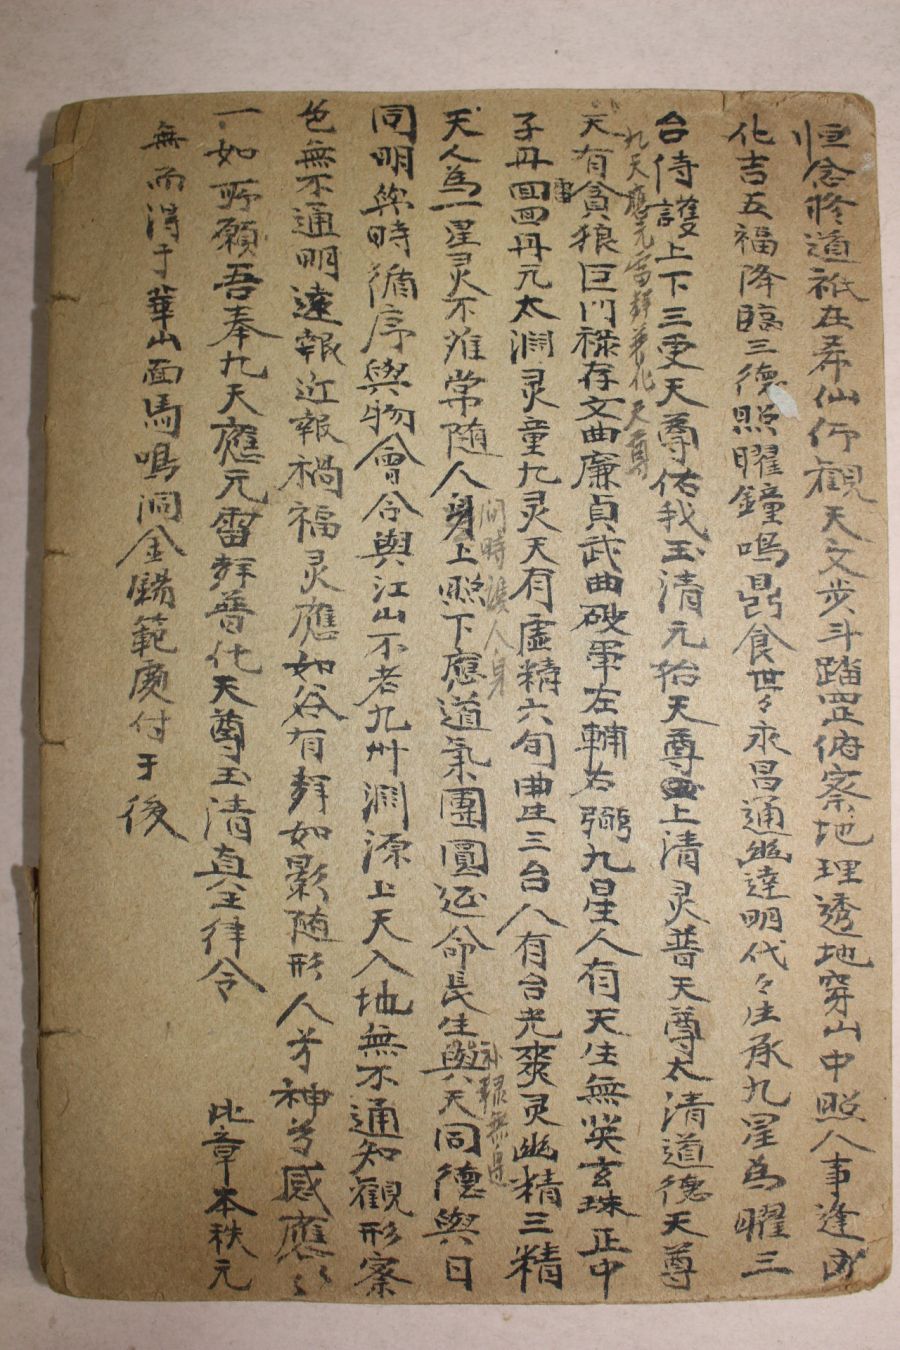 恒念修道祇在希仙仰觀天文步斗踏罡俯察地理透地穿山中照人事逢凶
化吉五福降臨三德照曜鐘鳴鼎食世々永昌通幽達明代々生承九星為曜三
台侍護上下三更天尊佑我玉清元始天尊上清灵普天尊太清道德天尊
九天應元雷聲普化天尊
天有貪狼巨門祿存文曲廉貞武曲破軍左輔右弼九星人有天生無英玄珠正中
子丹回回丹元太淵灵童九灵天有虛精六旬曲生三台人有台光爽灵幽精三精
天人為一星灵不难常随人身上照下應道氣團圓延命長生與天同德與日
同時濟人身
補祿無邊
同明與時循序與物會合與江山不老九州淵源上天入地無不通知觀形察
色無不通明遠報近報禍福灵應如谷有聲如影随形人兮神兮感應々
一如所願吾奉九天應元雷聲普化天尊玉清真王律令
此章本秩元
無而得于華山面馬鳴洞金鷄範處付于後